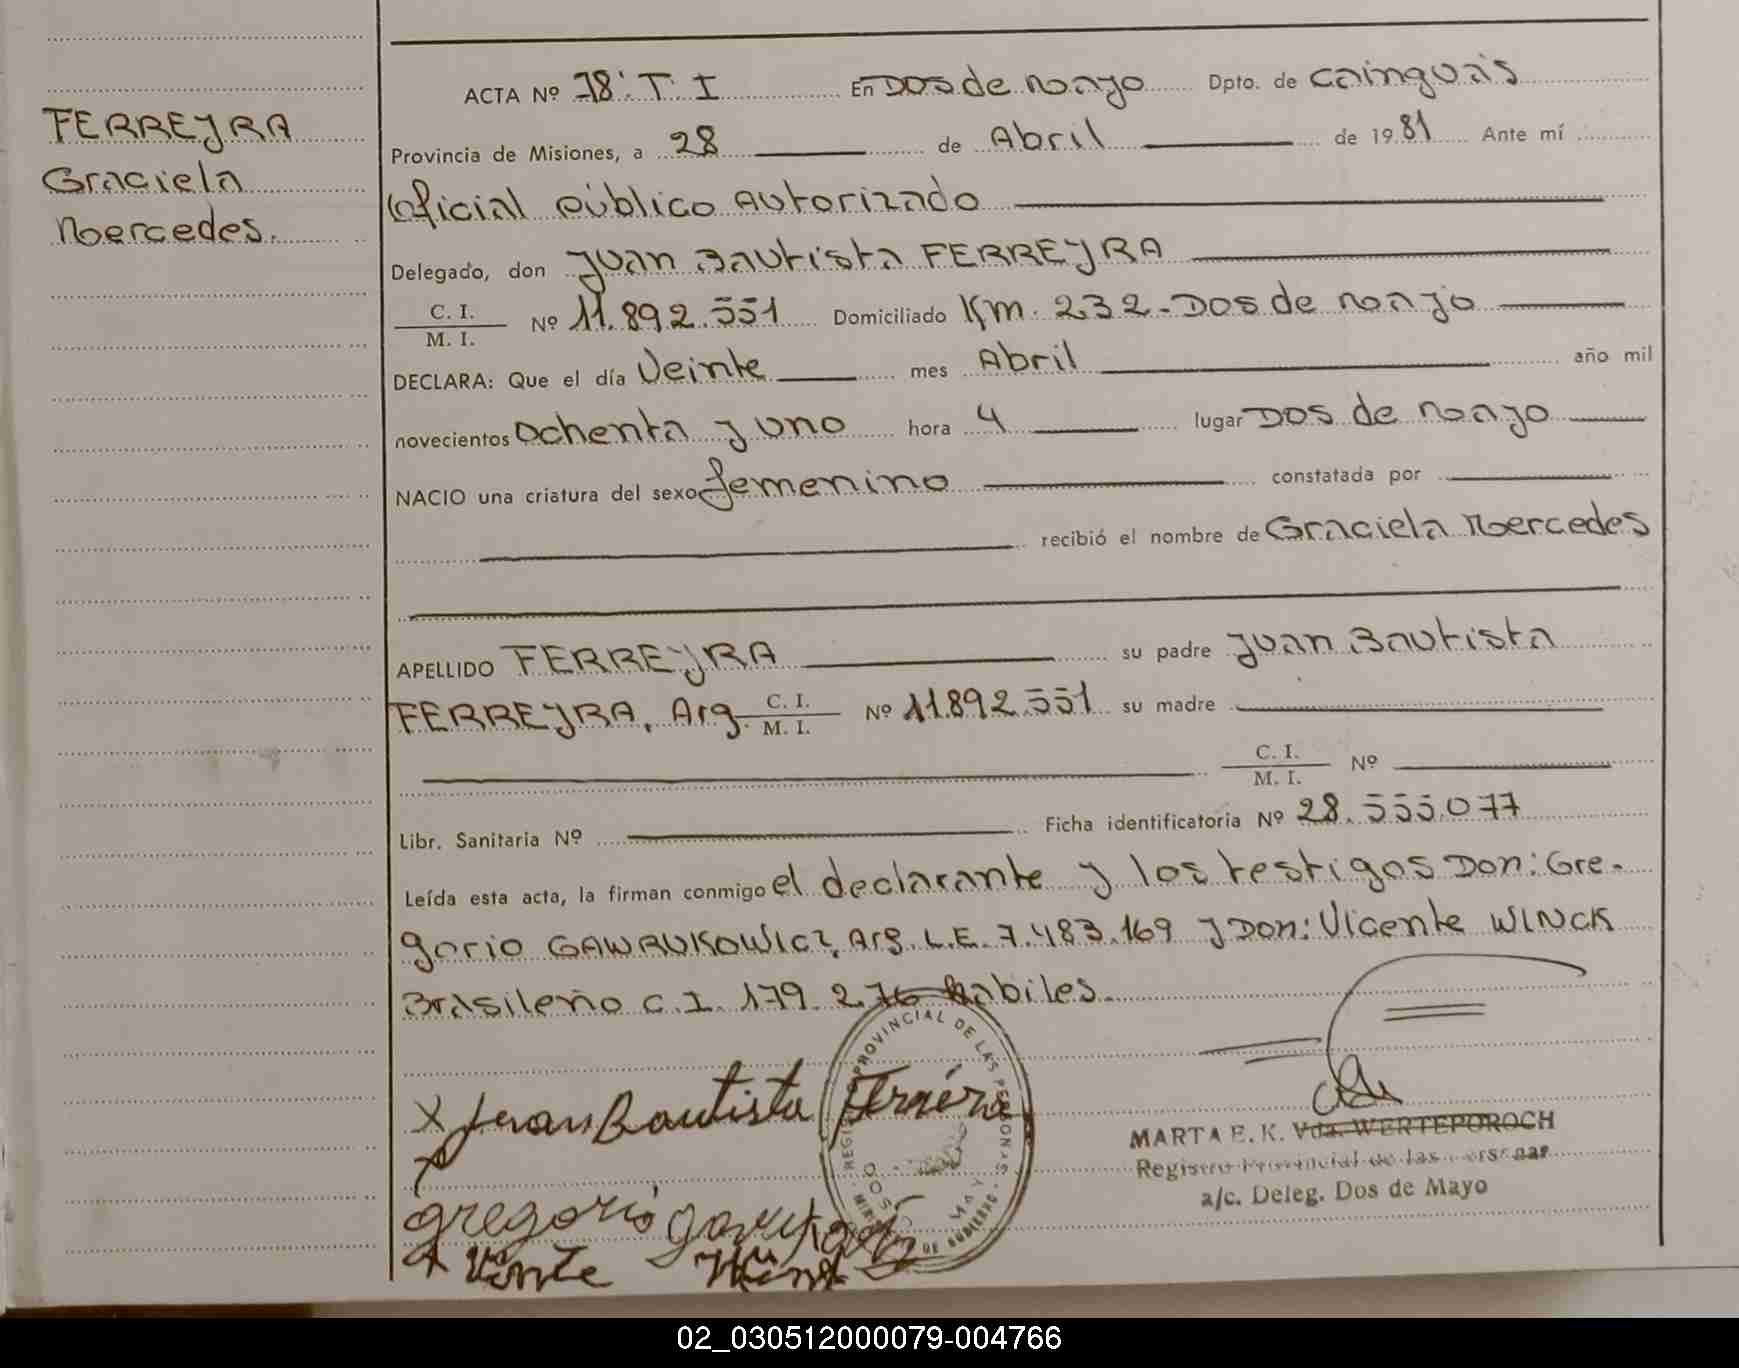 FERREYRA
Graciela
Mercedes.
ACTA Nº 78: T. I En Dos de Mayo Dpto. de Cainguás
Provincia de Misiones, a 28 de Abril de 1981 Ante mí
Oficial público Autorizado
Delegado, don Juan Bautista FERREYRA
C. I.
M. I. Nº 11.892.551 Domiciliado Km. 232 - Dos de Mayo
DECLARA: Que el día Veinte mes Abril año mil
novecientos Ochenta y uno hora 4 lugar Dos de Mayo
NACIO una criatura del sexo femenino constatada por
recibió el nombre de Graciela Mercedes
APELLIDO FERREYRA su padre Juan Bautista
FERREYRA, Arg. C. I. M. I. Nº 11.892.551 su madre
C. I. M. I. Nº
Libr. Sanitaria Nº Ficha identificatoria Nº 28.555.077
Leída esta acta, la firman conmigo el declarante y los testigos Don: Gre-
gorio GAWRUKOWICZ, Arg. L.E. 7.483.169 y Don: Vicente WINCK
Brasileño C.I. 179.276 habiles.
X Juan Bautista
gregorio
MARTA E. K. Vda. WERTEPOROCH
Registro Provincial de las
a/c. Deleg. Dos de Mayo
REGISTRO PROVINCIAL DE LAS PERSONAS
DOS DE MAYO
02_030512000079-004766